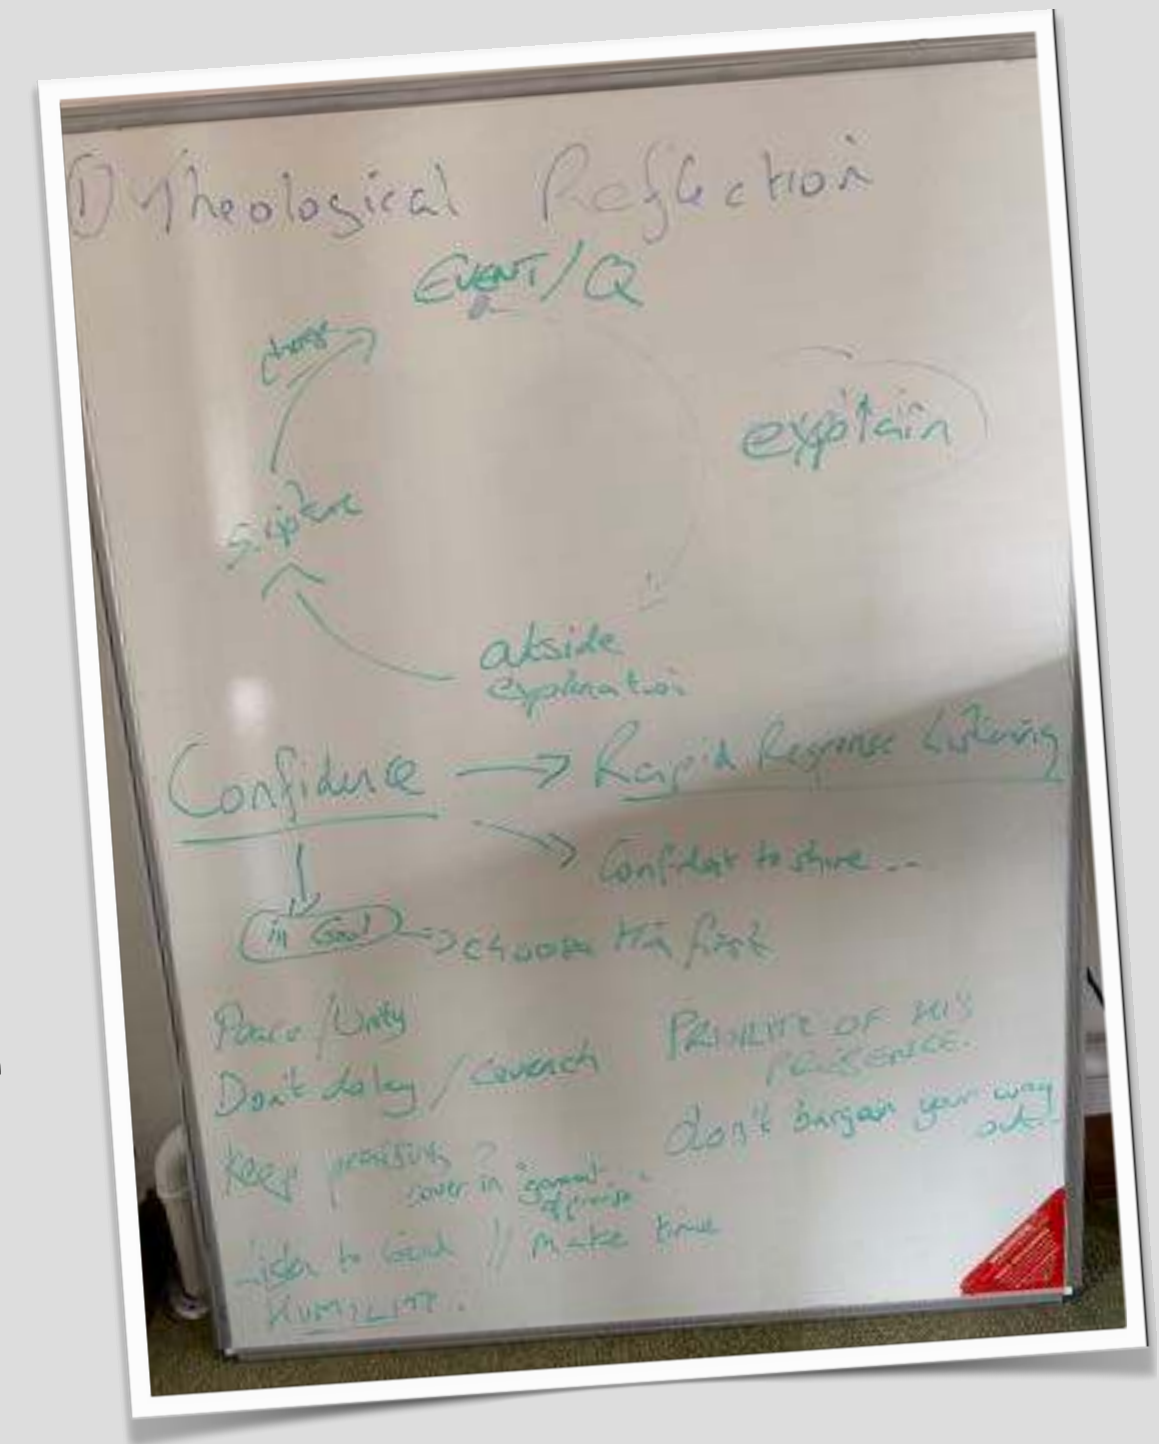 1) Theological Reflection
EVENT/Q
change
explain
Scripture
outside
explanation
Confidence → Rapid Response Listening
Confident to shine...
in God → choose Him first
Peace/Unity
PRIORITY OF HIS
PRESENCE.
Don't delay /
don't bargain your way
out.
Keep praising
cover in "garment
of praise"
Listen to God // Make time
HUMILITY.